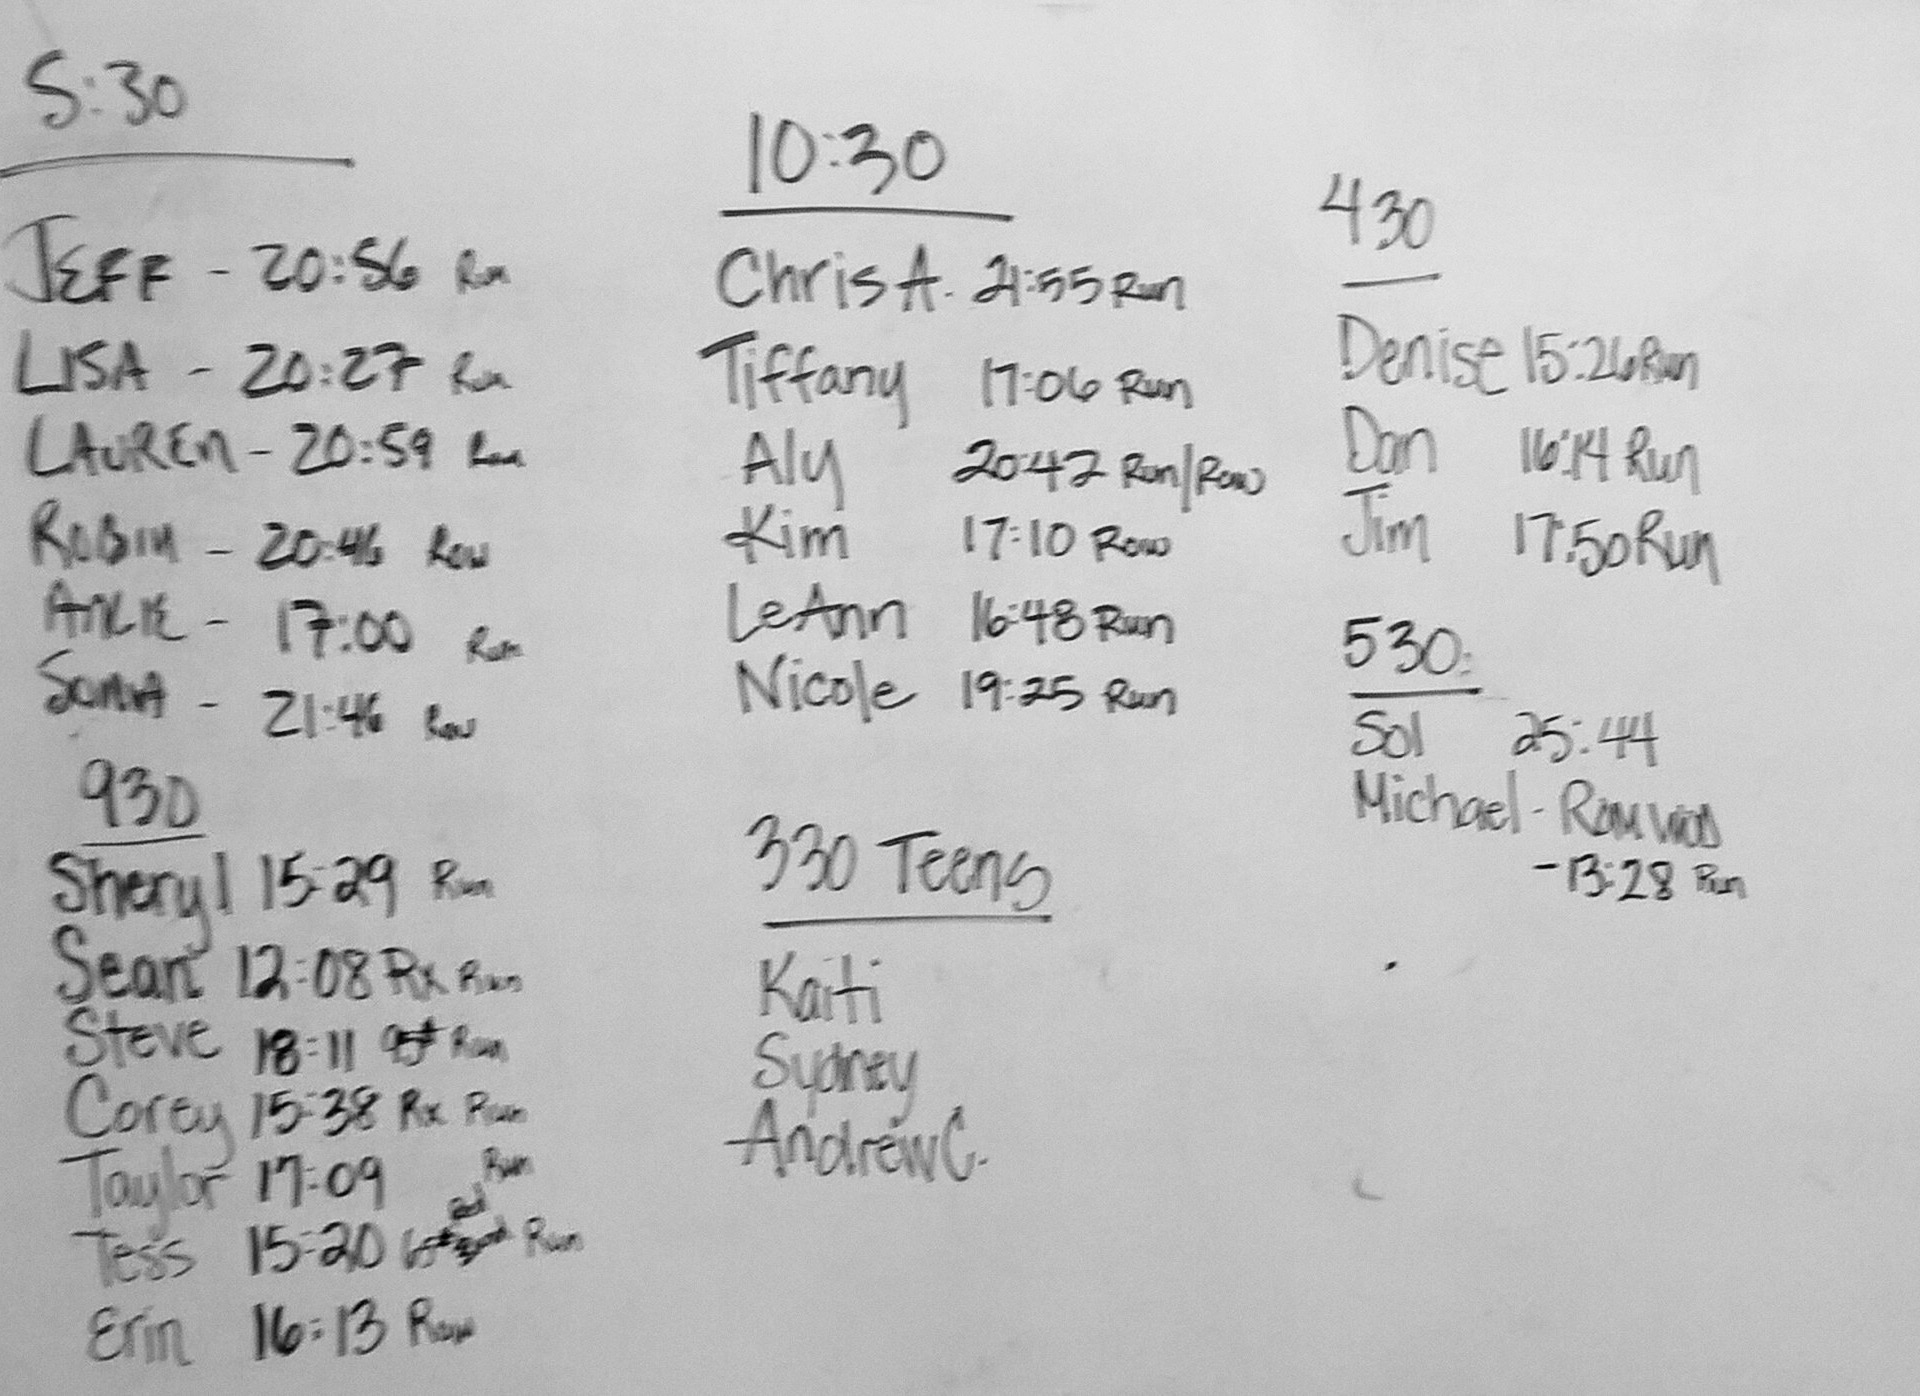 5:30
JEFF - 20:56 Run
LISA - 20:27 Run
LAUREN - 20:59 Run
ROBIN - 20:46 Row
17:00 Run
21:46 Row
930
Sheryl 15:29 Run
Sean 12:08 Rx Run
Steve 18:11 95# Run
Corey 15:38 Rx Run
Taylor 17:09 Run
Tess 15:20 65# Run
Erin 16:13 Row
10:30
Chris A. 21:55 Run
Tiffany 17:06 Run
Aly 20:42 Run/Row
Kim 17:10 Row
LeAnn 16:48 Run
Nicole 19:25 Run
330 Teens
Kaiti
Sydney
Andrew C.
430
Denise 15:26 Run
Dan 16:14 Run
Jim 17:50 Run
530:
Sol 25:44
Michael - ROMWOD
- 13:28 Run